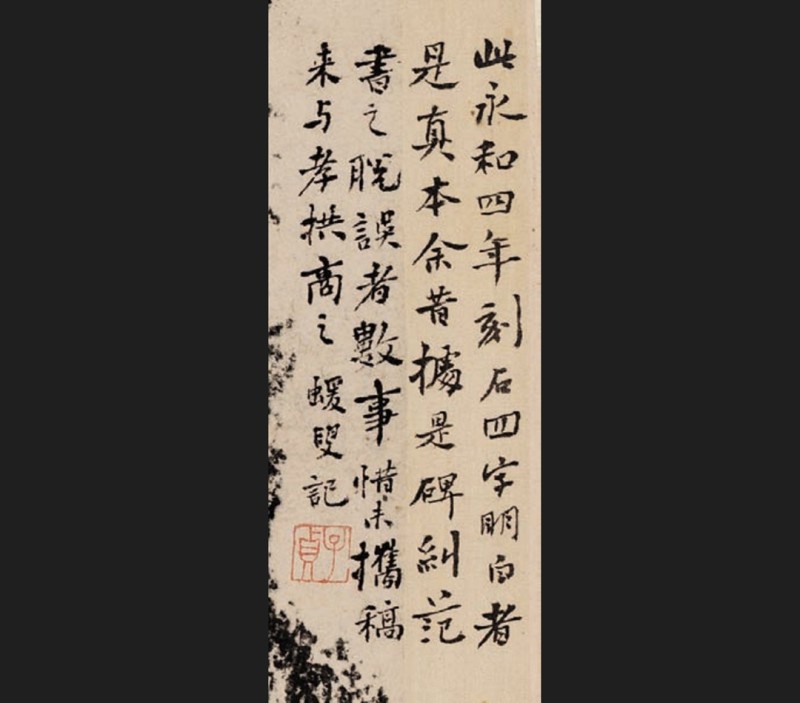 此永和四年刻石四字明白者
是真本余昔據是碑糾范
書之脫誤者數事惜未攜稿
来与孝拱商之蝯叟記
子貞